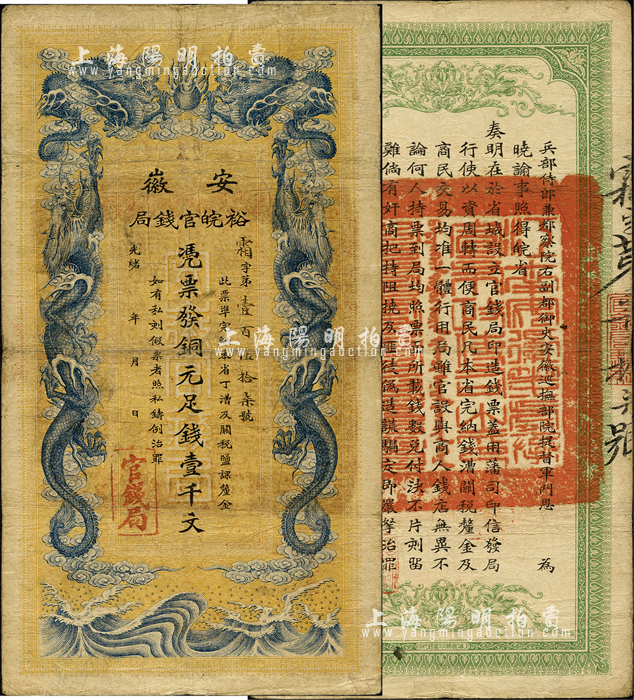 上海陽明拍賣
www.yangmingauction.com
安徽
裕皖官錢局
霜字第壹百 拾柒號
此票準完 省丁漕及關稅鹽課釐金
憑票發銅元足錢壹千文
如有私刻假票者照私鑄例治罪
光緒 年 月 日
官錢局
上海陽明拍賣
www.yangmingauction.com
兵部侍郎兼都察院右副都御史安徽巡撫部院提督軍門恩 為
曉諭事照得皖省
奏明在於省城設立官錢局印造錢票蓋用藩司印信發局
行使以資周轉而便商民凡本省完納錢漕關稅釐金及
商民交易均准一體行用局雖官設與商人錢店無異不
論何人持票到局均照票面所載錢數兌付決不片刻留
難倘有奸商把持阻撓及 造誆騙定即嚴拏治罪
上海陽明拍賣
www.yangmingauction.com
上海陽明拍賣
www.yangmingauction.com